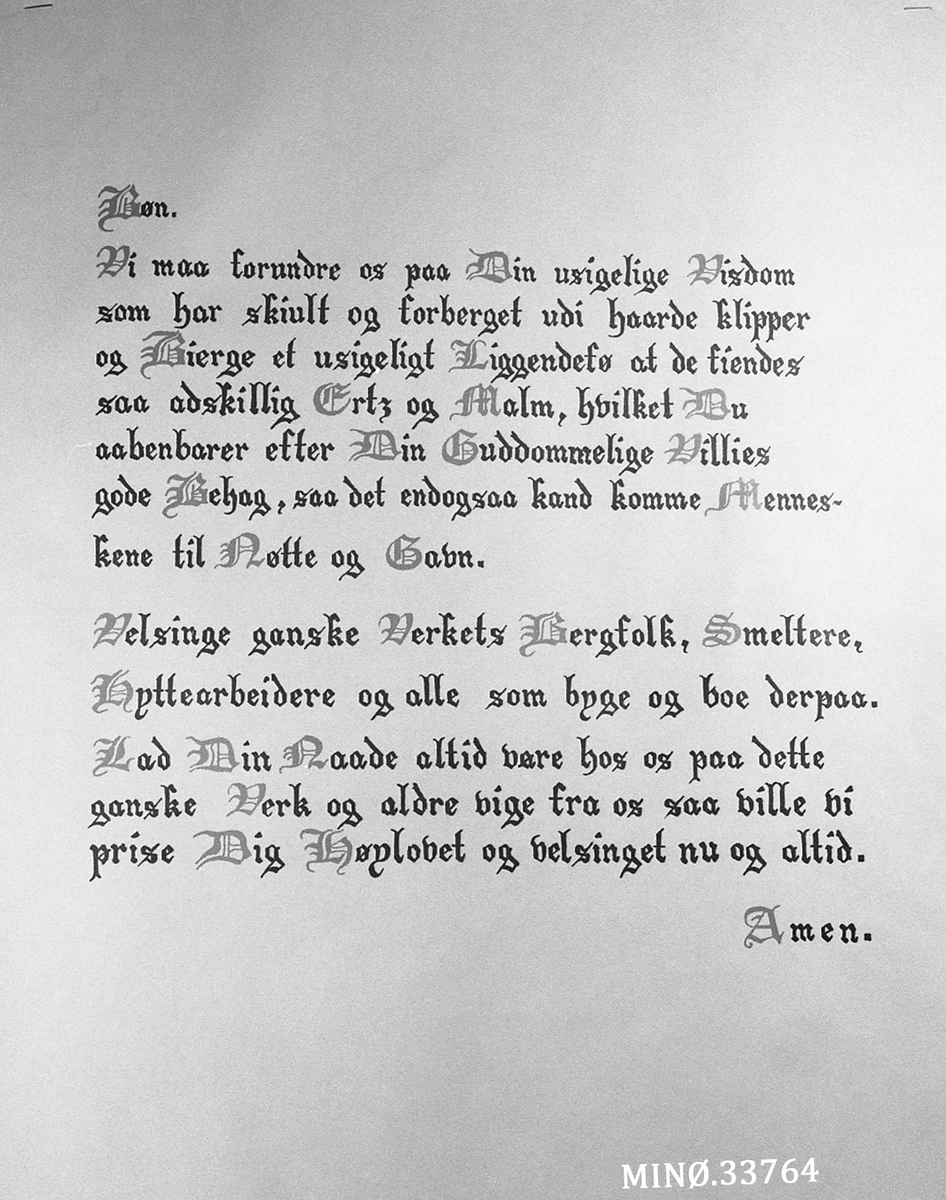 Bøn.
Vi maa forundre os paa Din usigelige Visdom
som har skiult og forberget udi haarde klipper
og Bierge et usigeligt Liggendefø at de fiendes
saa adskillig Ertz og Malm, hvilket Du
aabenbarer efter Din Guddommelige Villies
gode Behag, saa det endogsaa kand komme Mennes-
kene til Nøtte og Gavn.
Velsinge ganske Verkets Bergfolk, Smeltere,
Hyttearbeidere og alle som byge og boe derpaa.
Lad Din Naade altid være hos os paa dette
ganske Verk og aldre vige fra os saa ville vi
prise Dig Høylovet og velsinget nu og altid.
Amen.
MINØ.33764